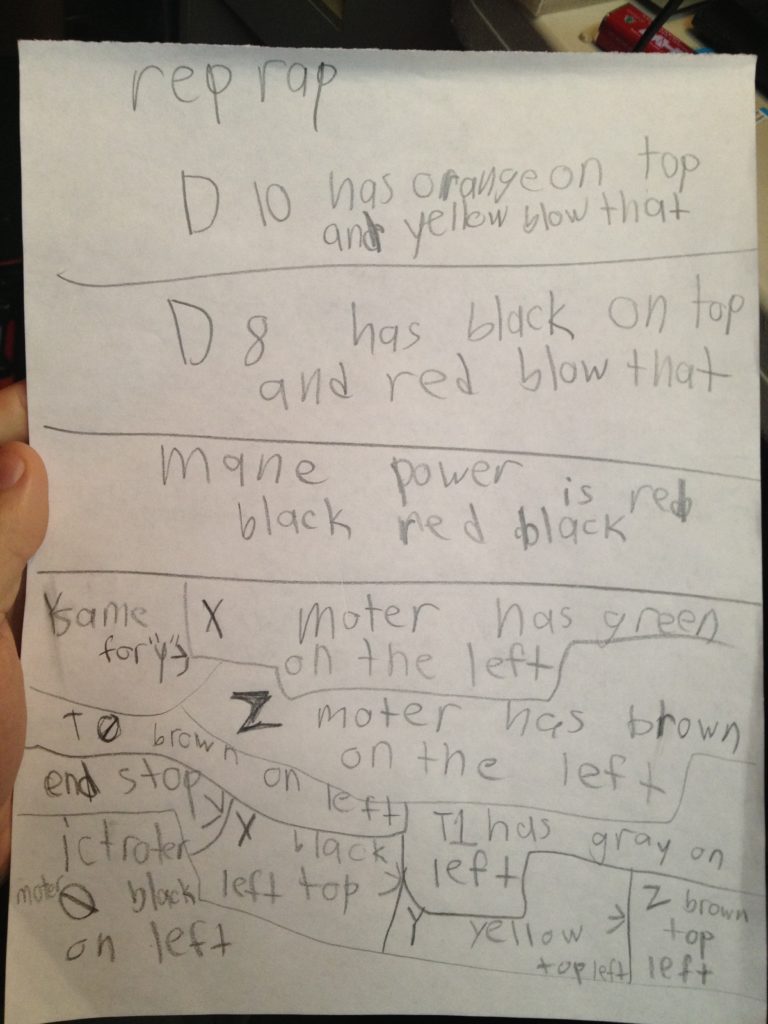 rep rap
D 10 has orange on top
and yellow blow that
D 8 has black on top
and red blow that
mane power is red
black red black
Ysame
for "y"
X moter has green
on the left
Z moter has brown
on the left
T0 brown on left
end stop
X black
left top
Y yellow
top left
Z brown
top
left
T1 has gray on
left
ictroter
moter 0 black
on left